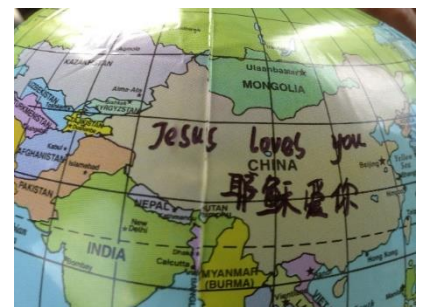 KAZAKHSTAN
Ulaanbaatar
MONGOLIA
Alma-Ata
KYRGYZSTAN
Jesus loves you
CHINA
Beijing
耶稣爱你
Kabul
AFGHANISTAN
Islamabad
PAKISTAN
NEPAL
New Delhi
INDIA
Calcutta
Bombay
MYANMAR
(BURMA)
Hong Kong